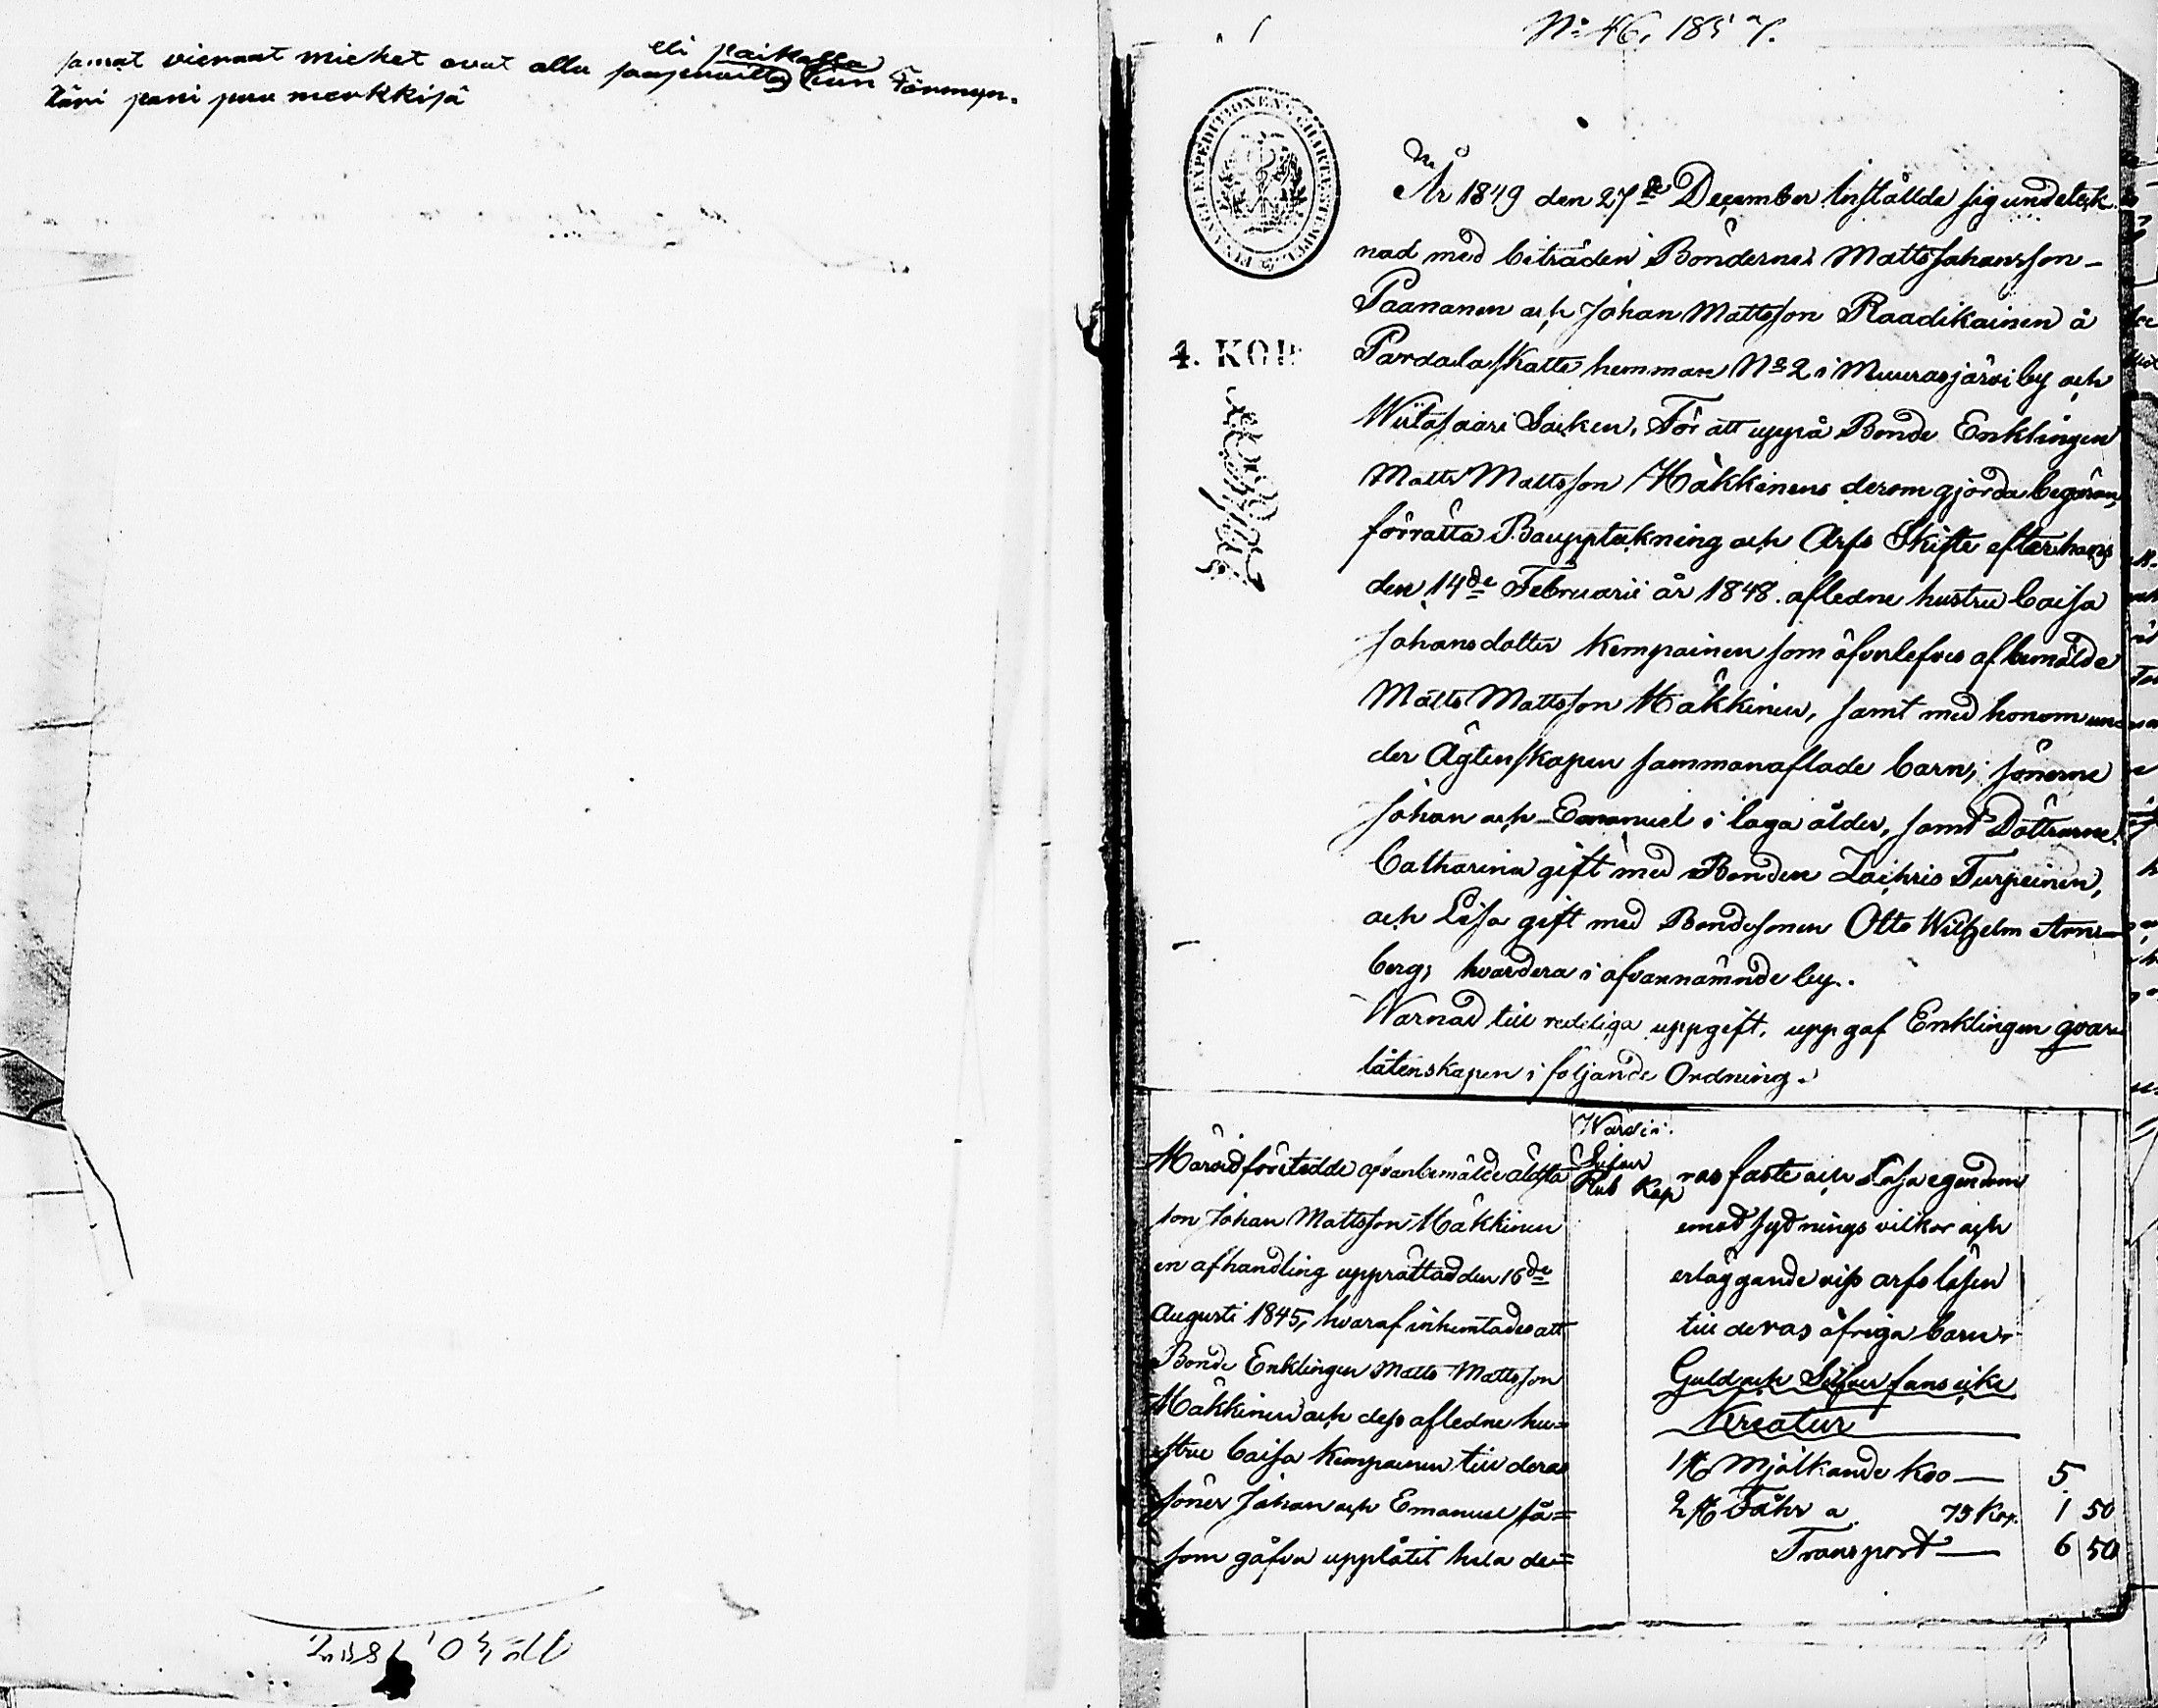 samat vieraat miehet ovat olla saapuvilla eli paikalla kun Förmyn-
täri pani puu merkkisä
No 46, 1857.
FINANCE EXPEDITIONENS CHARTÆ STEMPEL
4. KOP
År 1849 den 27de December Inställde sig undeteck
nad med biträden Bönderne Matts Johansson
Paananen och Johan Mattsson Raadikainen å
Pardala Skatte hemman No 2 i Muurasjärvi by och
Wiitasaari Socken, För att uppå Bonde Enklingen
Matts Mattsson Häkkinens derom gjorda begäran,
förrätta Boupptekning och Arfs Skifte efter hans
den 14de Februarii år 1848. afledne hustru Caisa
Johansdotter Kemppainen som öfverlefves af bemälde
Matts Mattsson Häkkinen, samt med honom un
der Ägtenskapen sammanaflade barn; sönerne
Johan och Emanuel i laga ålder, samt Döttrarne
Catharina gift med Bonden Zachris Turpeinen,
och Lisa gift med Bondesonen Otto Wilhelm Arn-
berg; hvardera i ofvannämnde by.
Warnad till redeliga uppgift, uppgaf Enklingen qvar
låtenskapen i följande Ordning.
Härvid företedde ofvanbemälde äldsta
son Johan Mattsson Häkkinen
en afhandling upprättad den 16de
Augusti 1845, hvaraf inhemtades att
Bonde Enklingen Matts Mattsson
Häkkinen och dess afledne hu=
stru Caisa Kemppainen till deras
söner Johan och Emanuel så=
som gåfva upplåtit hela de=
Wärde i
Silfver
Rub Kop
ras faste och Lösa egendom
emot sytnings vilkor och
erläggande viss arfs lösen
till deras öfriga barn.
Guld och Silfver fans icke
Kreatur
1 st Mjölkande Koo — 5
2 st Fåhr a 75 Kop. 1 50
Transport — 6 50
No 30, 1857